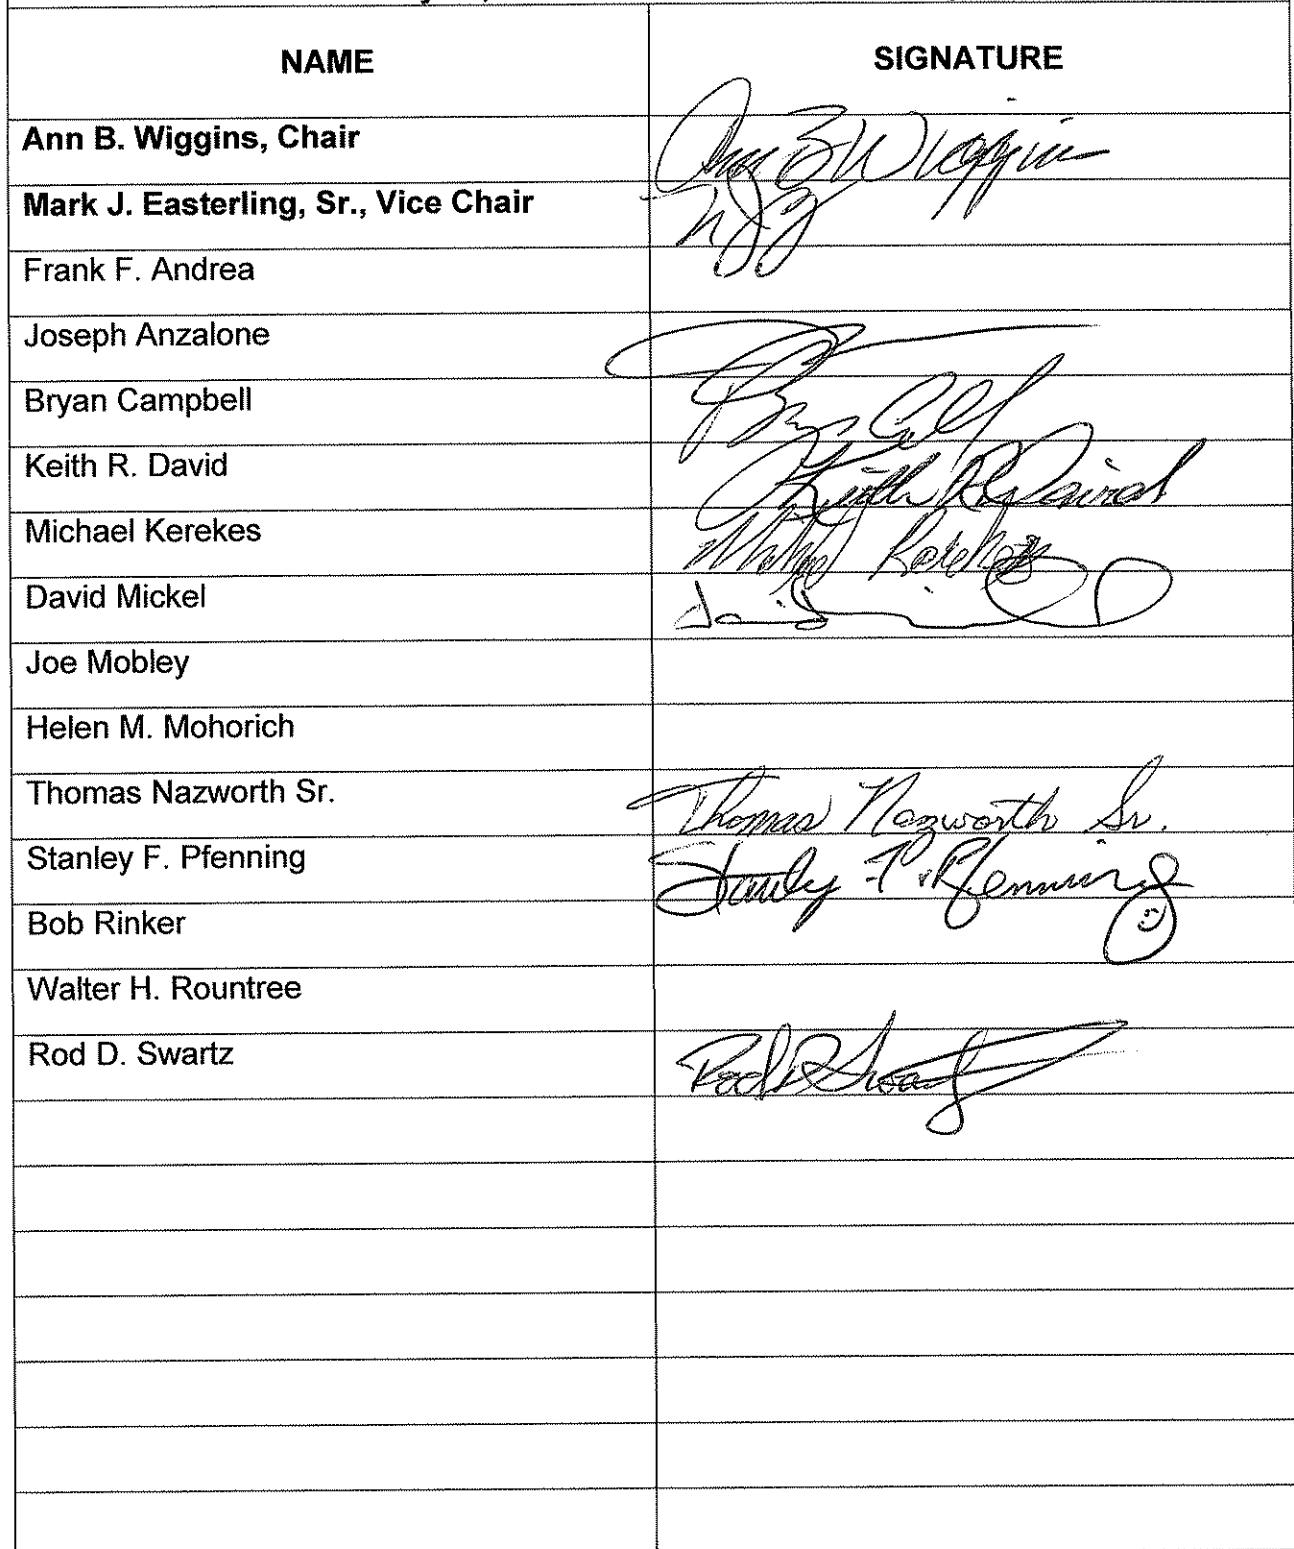 NAME SIGNATURE
Ann B. Wiggins, Chair Ann B Wiggins
Mark J. Easterling, Sr., Vice Chair
Frank F. Andrea
Joseph Anzalone
Bryan Campbell
Keith R. David Keith R David
Michael Kerekes Michael Kerekes
David Mickel David
Joe Mobley
Helen M. Mohorich
Thomas Nazworth Sr. Thomas Nazworth Sr.
Stanley F. Pfenning Stanley F. Pfenning
Bob Rinker
Walter H. Rountree
Rod D. Swartz Rod D Swartz